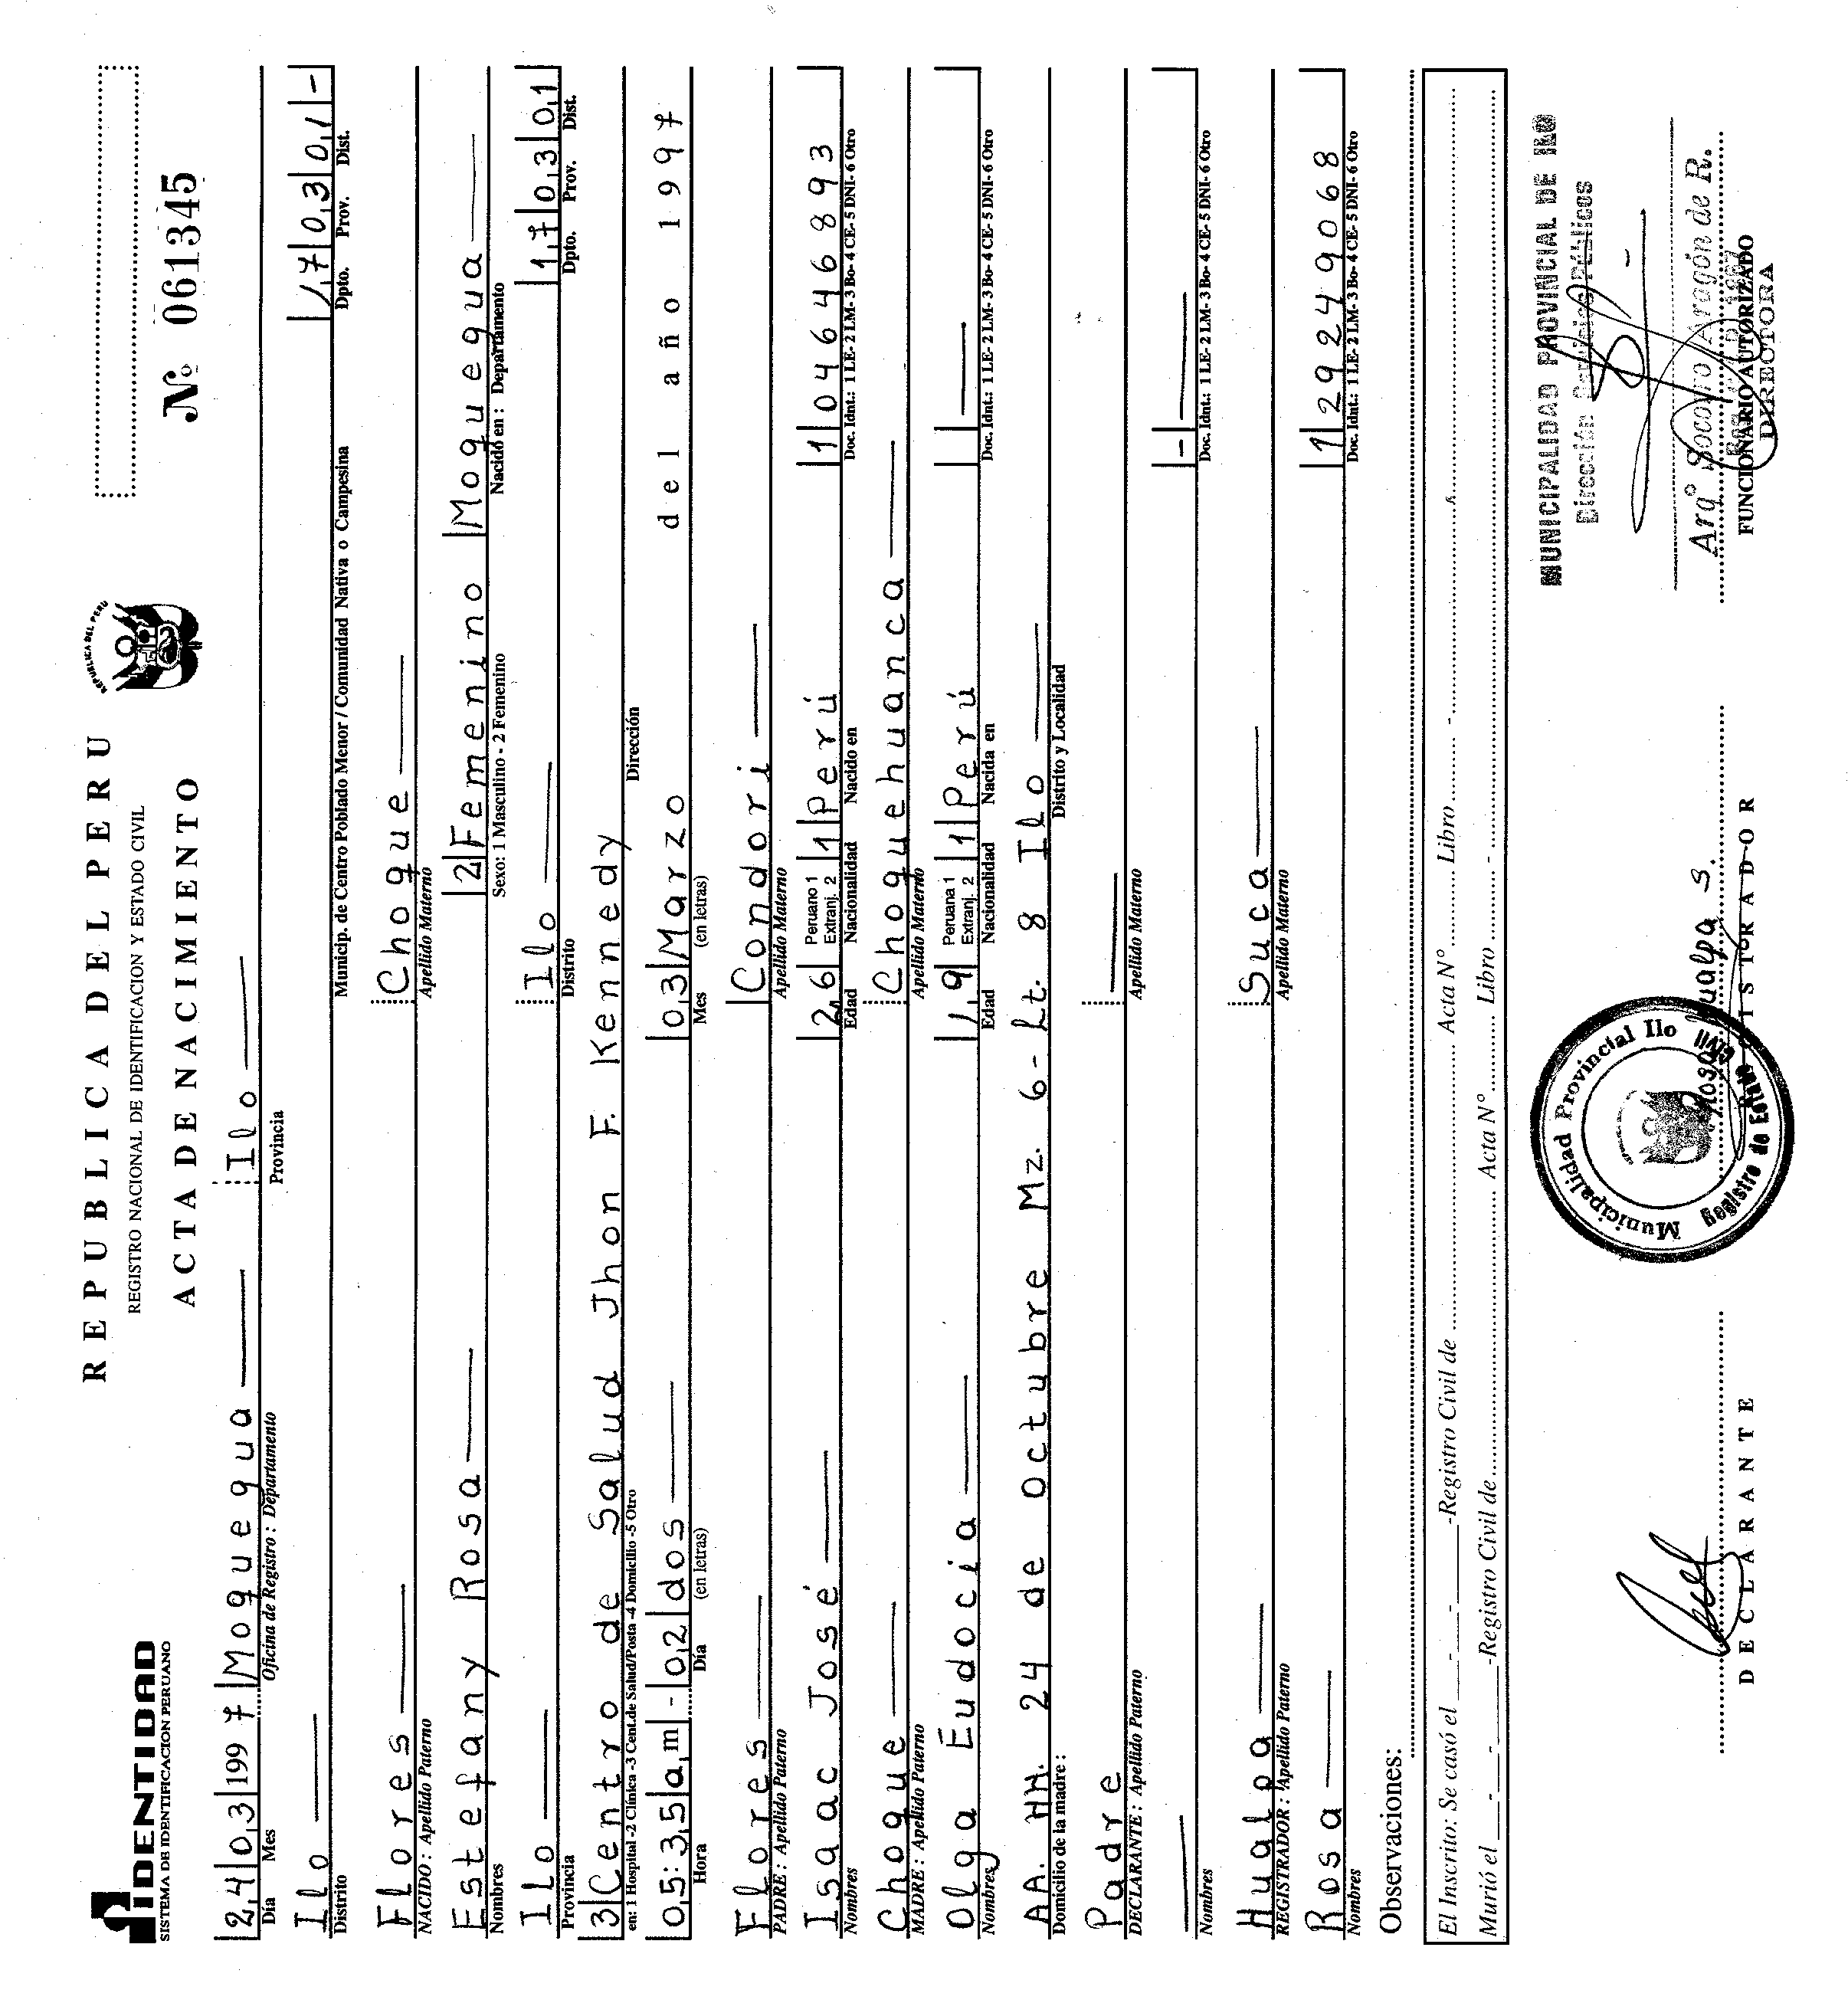 REPUBLICA DEL PERU
REPUBLICA DEL PERU
IDENTIDAD
SISTEMA DE IDENTIFICACION PERUANO
REGISTRO NACIONAL DE IDENTIFICACION Y ESTADO CIVIL
ACTA DE NACIMIENTO
Nº 061345
24 03 1997 Moquegua Ilo
Día Mes Oficina de Registro : Departamento Provincia
Ilo 17 03 01 -
Distrito Municip. de Centro Poblado Menor / Comunidad Nativa o Campesina Dpto. Prov. Dist.
Flores Choque
NACIDO : Apellido Paterno Apellido Materno
Estefany Rosa 2 Femenino Moquegua
Nombres Sexo: 1 Masculino - 2 Femenino Nacido en : Departamento
Ilo Ilo 17 03 01
Provincia Distrito Dpto. Prov. Dist.
3 Centro de Salud Jhon F. Kennedy
en: 1 Hospital -2 Clínica -3 Cent.de Salud/Posta -4 Domicilio -5 Otro Dirección
05:35 a,m - 02 dos 03 Marzo del año 1997
Hora Día (en letras) Mes (en letras)
Flores Condori
PADRE : Apellido Paterno Apellido Materno
Isaac José 26 Peruano 1 Extranj. 2 1 Perú 1 04646893
Nombres Edad Nacionalidad Nacido en Doc. Idnt.: 1 LE- 2 LM- 3 Bo- 4 CE- 5 DNI- 6 Otro
Choque Choquehuanca
MADRE : Apellido Paterno Apellido Materno
Olga Eudocia 19 Peruana 1 Extranj. 2 1 Perú
Nombres Edad Nacionalidad Nacida en Doc. Idnt.: 1 LE- 2 LM- 3 Bo- 4 CE- 5 DNI- 6 Otro
AA. HH. 24 de Octubre Mz. 6 - Lt. 8 Ilo
Domicilio de la madre : Distrito y Localidad
Padre
DECLARANTE : Apellido Paterno Apellido Materno
-
Nombres Doc. Idnt.: 1 LE- 2 LM- 3 Bo- 4 CE- 5 DNI- 6 Otro
Hualpa Suca
REGISTRADOR : Apellido Paterno Apellido Materno
Rosa 1 29249068
Nombres Doc. Idnt.: 1 LE- 2 LM- 3 Bo- 4 CE- 5 DNI- 6 Otro
Observaciones:
El Inscrito: Se casó el - - -Registro Civil de Acta Nº Libro -
Murió el - - -Registro Civil de Acta Nº Libro -
MUNICIPALIDAD PROVINCIAL DE ILO
Dirección Servicios Públicos
Municipalidad Provincial Ilo
Registro de Estado Civil
Rosa Hualpa S.
Arqº Socorro Aragón de R.
DECLARANTE REGISTRADOR FUNCIONARIO AUTORIZADO
DIRECTORA